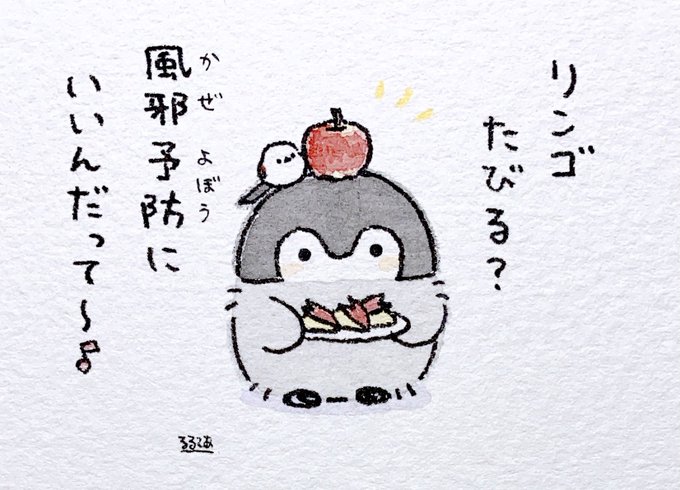 リンゴ
たびる？
かぜ よぼう
風邪予防に
いいんだって〜♪
るるてあ